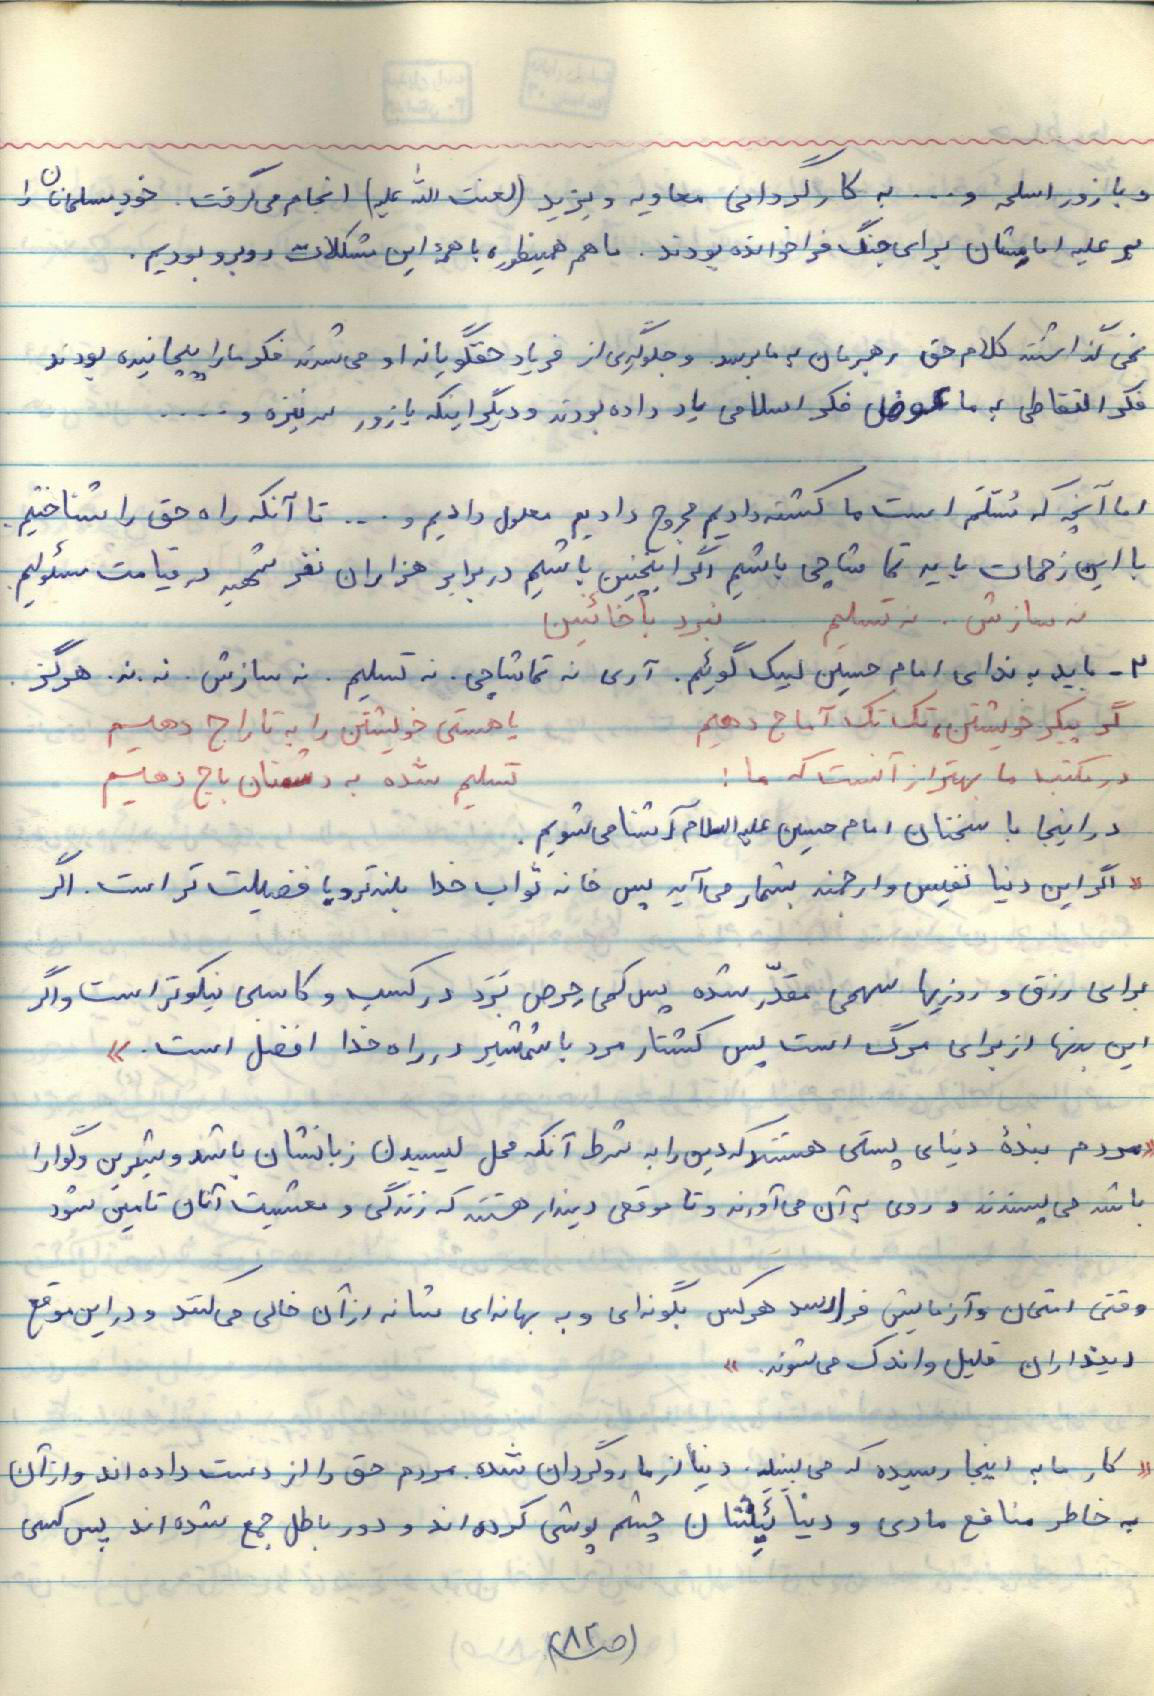 و با زور اسلحه و ... به کارگردانی معاویه و یزید (لعنت الله علیه) انجام می گرفت. خود مسلمانان را
بر علیه امامشان برای جنگ فراخوانده بودند. ما هم همینطور، با همهٔ این مشکلات روبرو بودیم.
نمی گذاشتند کلام حق رهبرمان به ما برسد. و جلوگیری از فریاد حقگویانه او می شدند فکر ما را پیچانیده بودند
فکر التقاطی به ما عوض فکر اسلامی یاد داده بودند و دیگر اینکه با زور سر نیزه و ....
اما آنچه که مُسَلَّم است ما کشته دادیم مجروح دادیم معلول دادیم و ... تا آنکه راه حق را شناختیم.
با این زحمات باید تماشاچی باشیم اگر اینچنین باشیم در برابر هزاران نفر شهید در قیامت مسئولیم.
نه سازش . نه تسلیم .... نبرد با خائنین
۲- باید به ندای امام حسین لبیک گوئیم. آری نه تماشاچی. نه تسلیم. نه سازش. نه. نه. هرگز.
گر پیکر خویشتن، تک تک آماج دهیم یا هستی خویشتن را به تاراج دهیم
در مکتب ما بهتر از آنست که ما: تسلیم شده به دشمنان باج دهیم
در اینجا با سخنان امام حسین علیه السلام آشنا می شویم.
« اگر این دنیا نفیس و ارجمند بشمار می آید پس خانه ثواب خدا بلندتر و با فضیلت تر است. اگر
برای رزق و روزیها سهمی مقدّر شده پس کمی حرص نَبَرَد در کسب و کاسبی نیکوتر است و اگر
این بدنها از برای مرگ است پس کشتار مرد با شمشیر در راه خدا افضل است. »
« مردم بندهٔ دنیای پستی هستند که دین را به شرط آنکه محل لیسیدن زبانشان باشد و شیرین و گوارا
باشد می پسندند و روی به آن می آورند و تا موقعی دیندار هستند که زندگی و معشیت آنان تامین شود
وقتی امتحان و آزمایش فرا رسد هر کس بگونه ای و به بهانه ای شانه از آن خالی می کند و در این موقع
دینداران قلیل و اندک می شوند. »
« کار ما به اینجا رسیده که می بینید. دنیا از ما روگردان شده. مردم حق را از دست داده اند و از آن
به خاطر منافع مادی و دنیائیشان چشم پوشی کرده اند و دور باطل جمع شده اند پس کسی
(ص ۸۲)